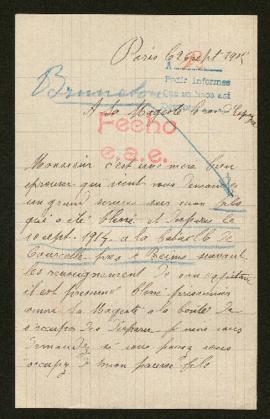 Paris le 2 sept 1915
Pedir informes
Brunet
A Sa Majesté le roi d'Espagne
Fecho
e.a.e.
Monsieur c'est une mère bien
éprouvée qui vient vous demander
un grand service sur mon fils
qui a été blessé et disparu le
10 sept 1914 a la bataille de
Courcelle près Reims suivant
les renseignement de son capitaine
il est présumé blessé prisonnier
comme la Majesté a la bonté de
s'occuper des disparu je viens vous
demander si vous pouvez vous
occupez de mon pauvre fils